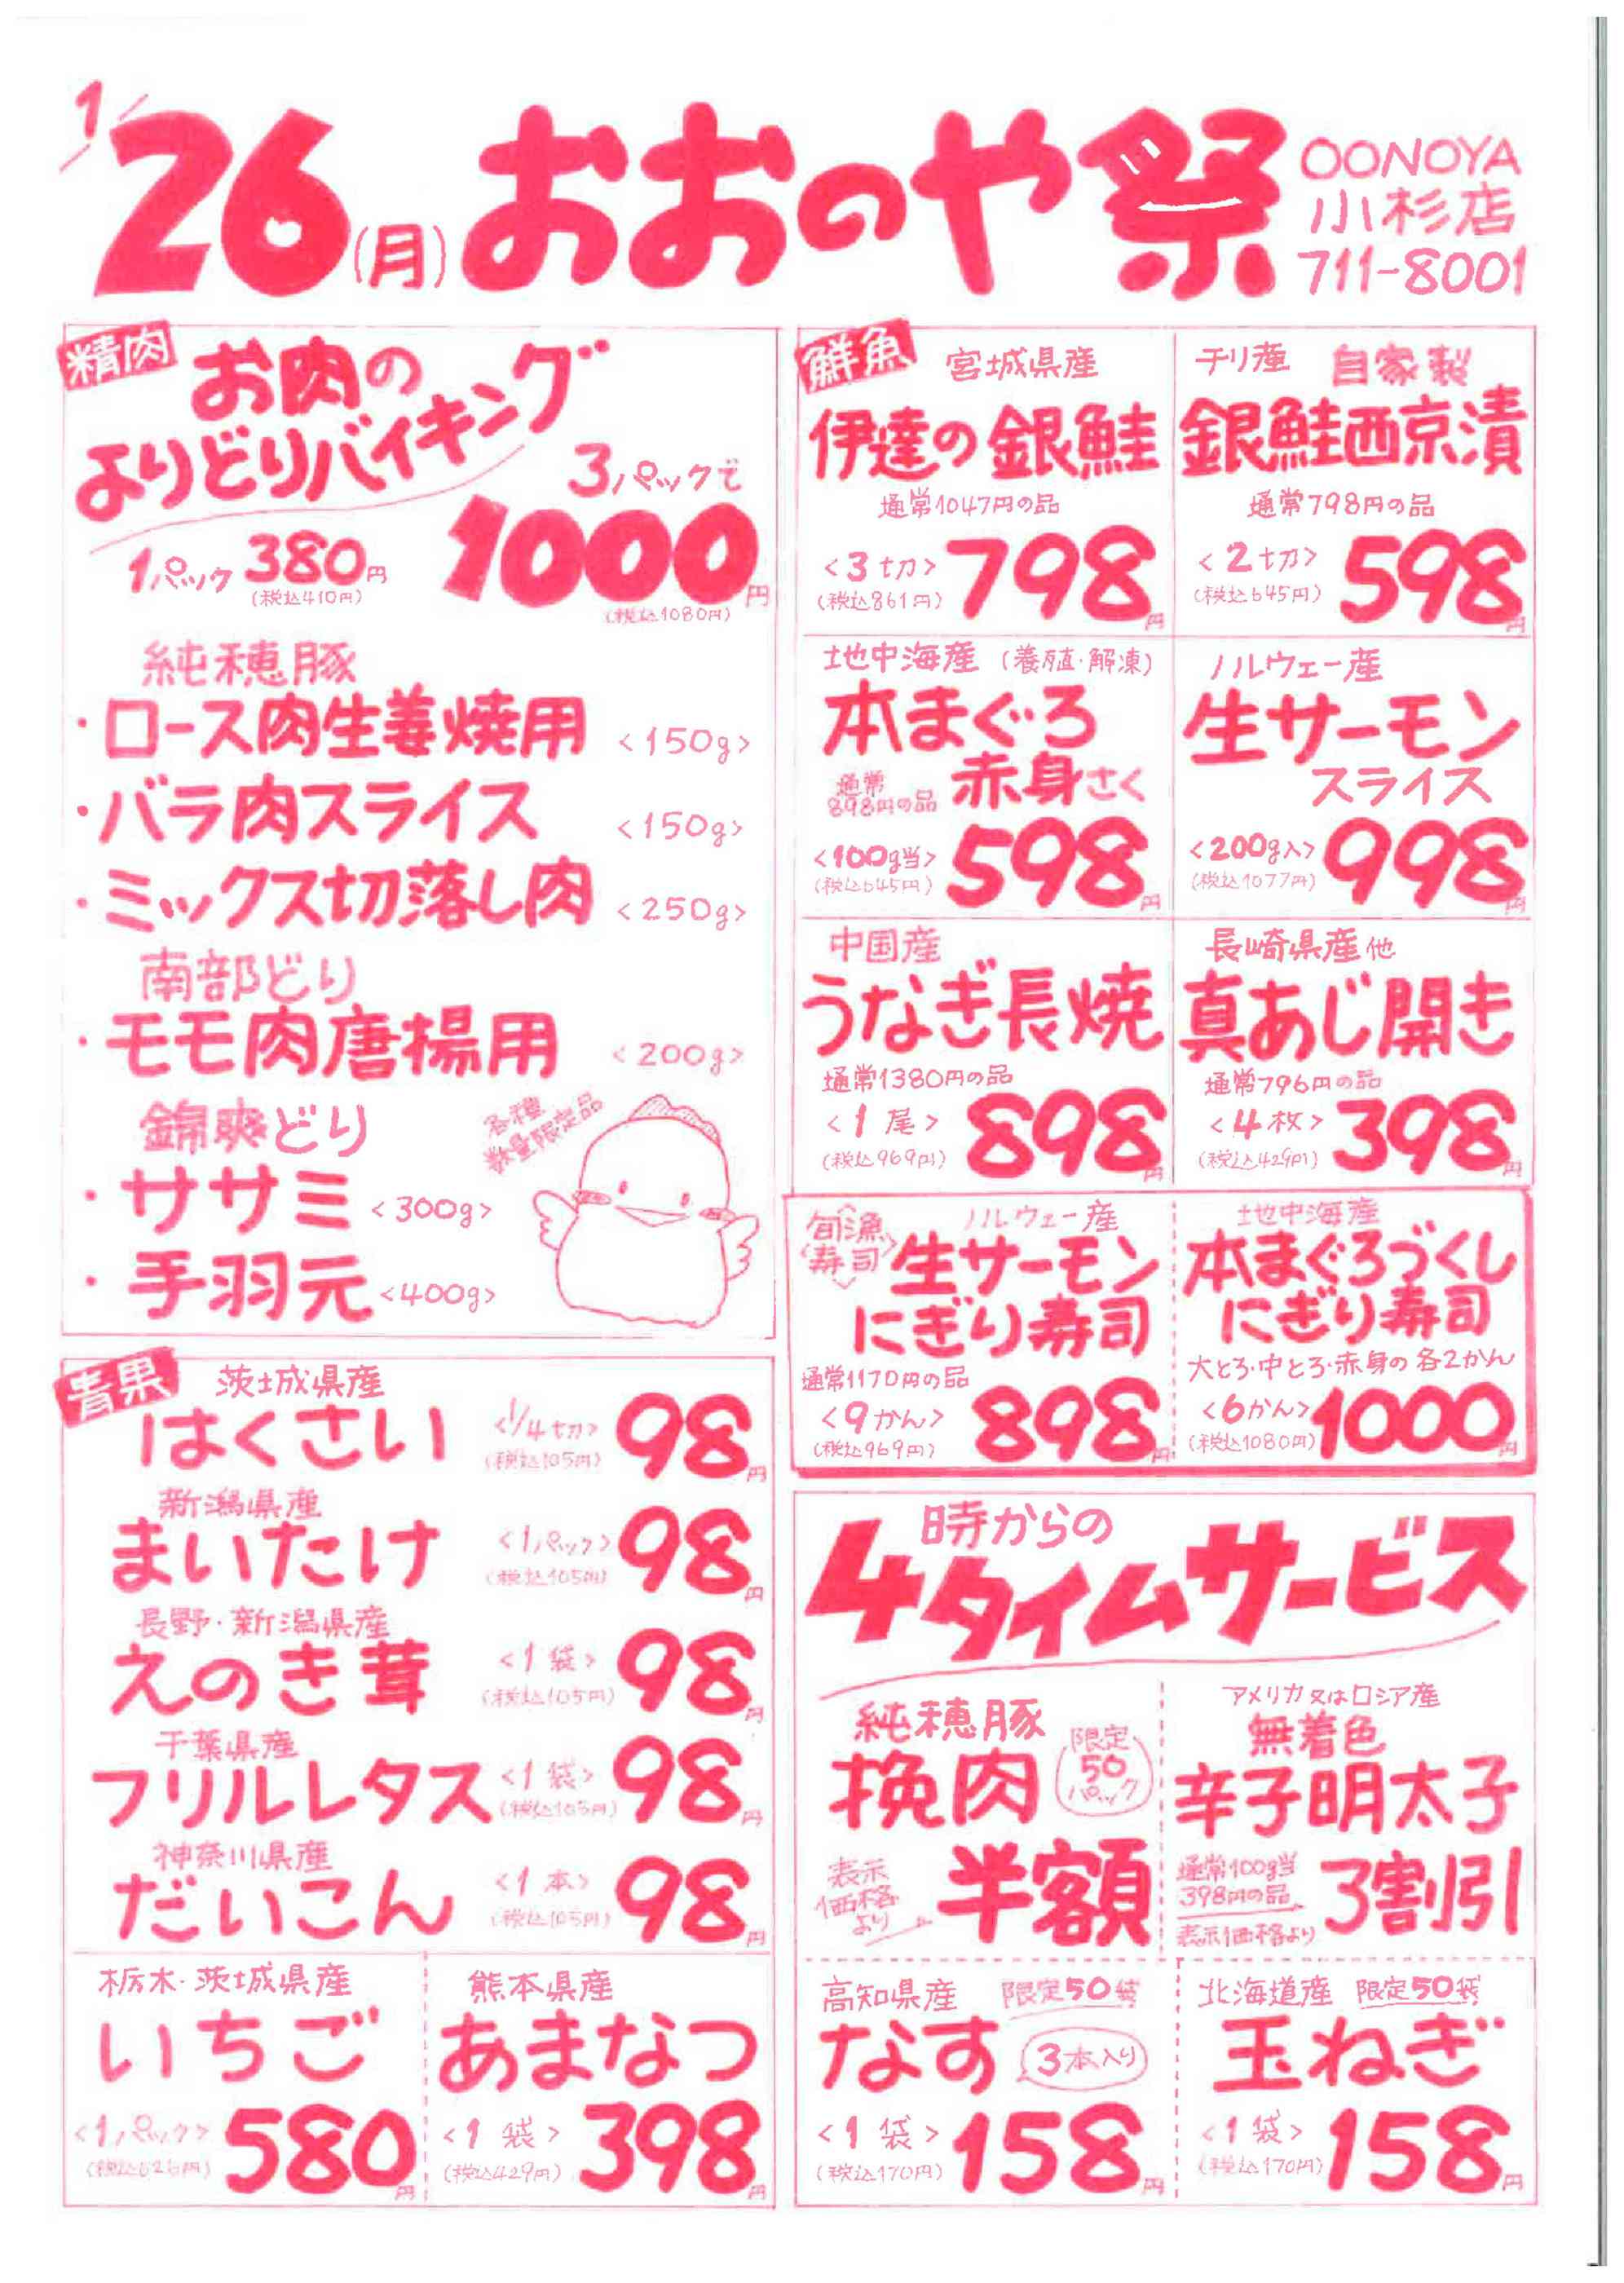 1/26(月)おおのや祭
OONOYA
小杉店
711-8001
精肉
お肉の
よりどりバイキング
3パックで
1パック 380円
(税込410円)
1000円
(税込1080円)
純穂豚
・ロース肉生姜焼用 <150g>
・バラ肉スライス <150g>
・ミックス切落し肉 <250g>
南部どり
・モモ肉唐揚用 <200g>
錦爽どり
各種
数量限定品
・ササミ <300g>
・手羽元 <400g>
青果
茨城県産
はくさい <1/4切> 98円
(税込105円)
新潟県産
まいたけ <1パック> 98円
(税込105円)
長野・新潟県産
えのき茸 <1袋> 98円
(税込105円)
千葉県産
フリルレタス <1袋> 98円
(税込105円)
神奈川県産
だいこん <1本> 98円
(税込105円)
栃木・茨城県産
いちご
<1パック> 580円
(税込626円)
熊本県産
あまなつ
<1袋> 398円
(税込429円)
鮮魚
宮城県産
伊達の銀鮭
通常1047円の品
<3切> 798円
(税込861円)
チリ産 自家製
銀鮭西京漬
通常798円の品
<2切> 598円
(税込645円)
地中海産(養殖・解凍)
本まぐろ
赤身さく
通常
898円の品
<100g当> 598円
(税込645円)
ノルウェー産
生サーモン
スライス
<200g入> 998円
(税込1077円)
中国産
うなぎ長焼
通常1380円の品
<1尾> 898円
(税込969円)
長崎県産他
真あじ開き
通常796円の品
<4枚> 398円
(税込429円)
旬漁
寿司
ノルウェー産
生サーモン
にぎり寿司
通常1170円の品
<9かん> 898円
(税込969円)
地中海産
本まぐろづくし
にぎり寿司
大とろ・中とろ・赤身の各2かん
<6かん> 1000円
(税込1080円)
4時からの
タイムサービス
純穂豚
挽肉
限定
50
パック
表示
価格
より
半額
アメリカ又はロシア産
無着色
辛子明太子
通常100g当
398円の品
表示価格より
3割引
高知県産 限定50袋
なす 3本入り
<1袋> 158円
(税込170円)
北海道産 限定50袋
玉ねぎ
<1袋> 158円
(税込170円)